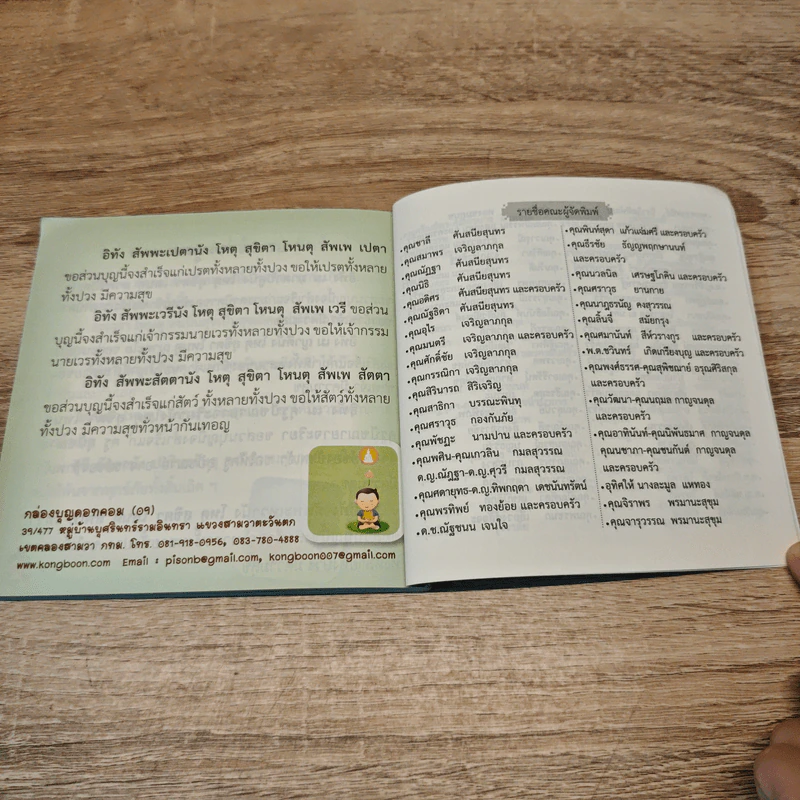 อิทัง สัพพะเปตานัง โหตุ สุขิตา โหนตุ สัพเพ เปตา
ขอส่วนบุญนี้จงสำเร็จแก่เปรตทั้งหลายทั้งปวง ขอให้เปรตทั้งหลาย
ทั้งปวง มีความสุข
อิทัง สัพพะเวรีนัง โหตุ สุขิตา โหนตุ สัพเพ เวรี ขอส่วน
บุญนี้จงสำเร็จแก่เจ้ากรรมนายเวรทั้งหลายทั้งปวง ขอให้เจ้ากรรม
นายเวรทั้งหลายทั้งปวง มีความสุข
อิทัง สัพพะสัตตานัง โหตุ สุขิตา โหนตุ สัพเพ สัตตา
ขอส่วนบุญนี้จงสำเร็จแก่สัตว์ ทั้งหลายทั้งปวง ขอให้สัตว์ทั้งหลาย
ทั้งปวง มีความสุขทั่วหน้ากันเทอญ
กล่องบุญดอทคอม (๐๑)
39/477 หมู่บ้านบุศรินทร์รามอินทรา แขวงสามวาตะวันตก
เขตคลองสามวา กทม. โทร. 081-918-0956, 083-780-4888
www.kongboon.com Email : pisonb@gmail.com, kongboon007@gmail.com
รายชื่อคณะผู้จัดพิมพ์
•คุณชาลี คันสนียสุนทร
•คุณสมาพร เจริญลาภกุล
•คุณณัฏฐา คันสนียสุนทร
•คุณนิธิ คันสนียสุนทร
•คุณอดิศร คันสนียสุนทร และครอบครัว
•คุณณัฐธิดา คันสนียสุนทร
•คุณอุไร เจริญลาภกุล
•คุณมนตรี เจริญลาภกุล และครอบครัว
•คุณศักดิ์ชัย เจริญลาภกุล
•คุณกรรณิกา เจริญลาภกุล
•คุณสิรินารถ สิริเจริญ
•คุณสาธิกา บรรณะพันทุ
•คุณศราวุธ กองกันภัย
•คุณพัชฎะ นามปาน และครอบครัว
•คุณพศิน-คุณเกวลิน กมลสุวรรณ
•ด.ญ.ณัฏฐา-ด.ญ.ศุวรี กมลสุวรรณ
•คุณศดายุทธ-ด.ญ.ทิพกฤดา เดชนันทรัตน์
•คุณพรทิพย์ ทองย้อย และครอบครัว
•ด.ช.ณัฐชนน เจนใจ
•คุณพินท์สุดา แก้วแฉ่มศรี และครอบครัว
•คุณธีรชัย ธัญญพฤกษานนท์
และครอบครัว
•คุณนวลนิล เศรษฐโภคิน และครอบครัว
•คุณศราวุธ ยานกาย
•คุณนาฎธรนัญ คงสุวรรณ
•คุณลิ้นจี่ สมัยกรุง
•คุณศมานันท์ สีห์วรางกูร และครอบครัว
•พ.ต.ชวินทร์ เกิดเกรียงบุญ และครอบครัว
•คุณพงศ์ธรรศ-คุณสุพิชฌาย์ อรุณศิริสกุล
และครอบครัว
•คุณวัฒนา-คุณนฤมล กาญจนดุล
และครอบครัว
•คุณอาทินันท์-คุณนิพันธมาศ กาญจนดุล
คุณนชาภา-คุณชนกันต์ กาญจนดุล
และครอบครัว
•อุทิศให้ นางละมูล แหทอง
•คุณจิราพร พรมานะสุขุม
•คุณจารุวรรณ พรมานะสุขุม